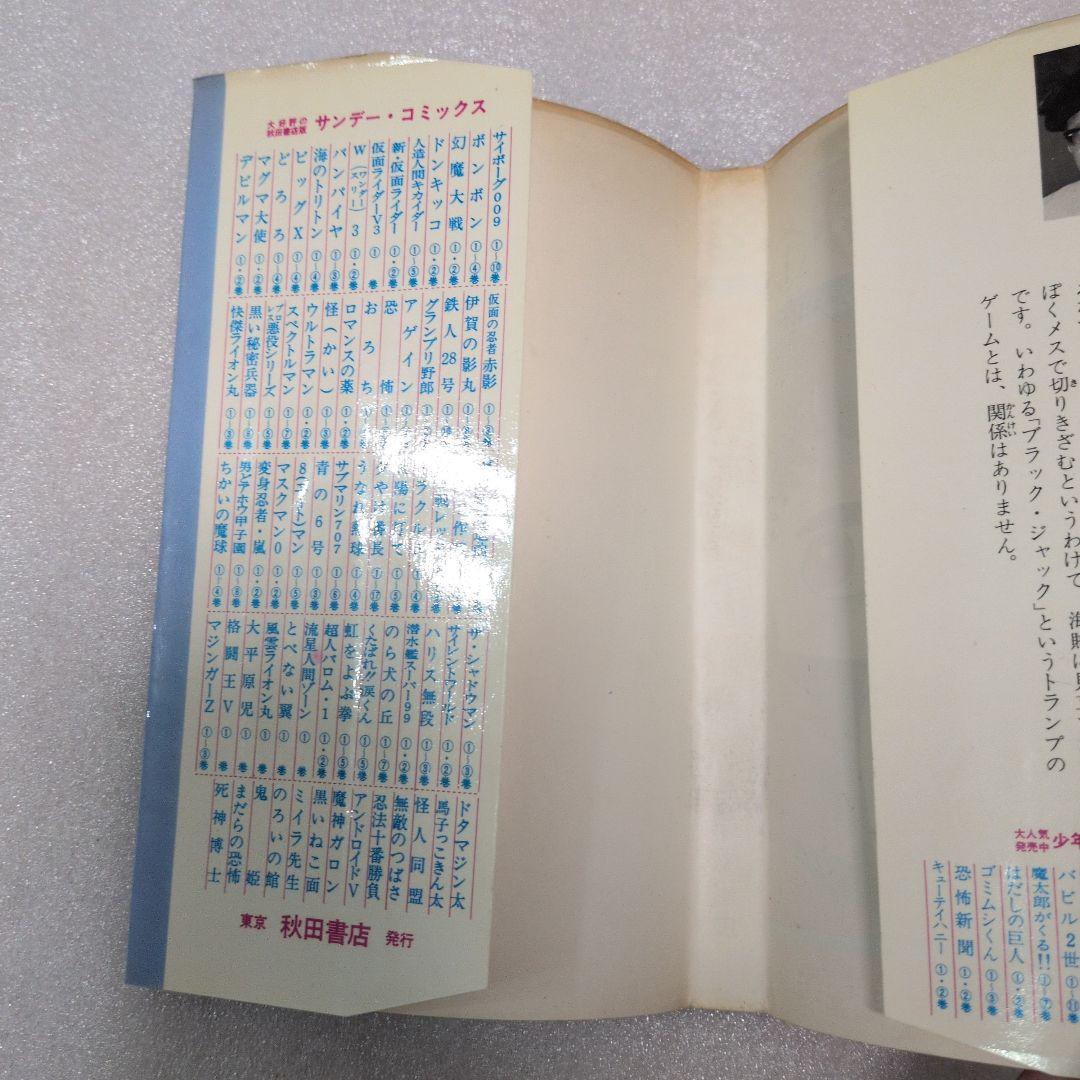 大好評の
秋田書店版
サンデー・コミックス
サイボーグ009 ①〜⑩巻
ボンボン ①〜④巻
幻魔大戦 ①・②巻
ドンキッコ ①・②巻
人造人間キカイダー ①〜⑤巻
新・仮面ライダー ①・②巻
仮面ライダーV3 ① 巻
W3(ワンダースリー) ①・②巻
バンパイヤ ①〜③巻
海のトリトン ①〜④巻
ビッグX ①〜④巻
どろろ ①〜④巻
マグマ大使 ①・②巻
デビルマン ①・②巻
仮面の忍者赤影
伊賀の影丸
鉄人28号
グランプリ野郎
アゲイン
恐怖
おろち
ロマンスの薬 ①・②巻
怪(かい) ①〜③巻
ウルトラマン ①・②巻
スペクトルマン ①〜⑦巻
プロレス悪役シリーズ ①〜⑤巻
黒い秘密兵器 ①〜⑥巻
快傑ライオン丸 ①〜③巻
①〜④巻
①〜⑤巻
①〜⑰巻
うなれ熱球 ①〜④巻
サブマリン707 ①〜⑥巻
青の6号 ①〜③巻
8(エイト)マン ①〜⑤巻
マスクマン0 ①・②巻
変身忍者・嵐 ①・②巻
男どアホウ甲子園 ①〜⑧巻
ちかいの魔球 ①〜④巻
ザ・シャドウマン ①〜③巻
サイレントワールド ①・②巻
ハリス無段 ①〜③巻
潜水艦スーパー99 ①・②巻
のら犬の丘 ①〜⑦巻
くたばれ!!涙くん ①〜⑤巻
虹をよぶ拳 ①〜⑤巻
超人バロム・1 ①・②巻
流星人間ゾーン ① 巻
とべない翼 ① 巻
風雲ライオン丸 ① 巻
大平原児 ① 巻
格闘王V ① 巻
マジンガーZ ①〜③巻
ドタマジン太
馬子っこきん太
怪人同盟
無敵のつばさ
忍法十番勝負
アンドロイドV
魔神ガロン
黒いねこ面
ミイラ先生
のろいの館
鬼姫
まだらの恐怖
死神博士
東京 秋田書店 発行
ぽくメスで切りきざむというわけで
です。いわゆる「ブラック・ジャック」というトランプの
ゲームとは、関係はありません。
大人気
発売中
少年
バビル2世 ①〜⑪巻
魔太郎がくる!! ①〜⑦巻
はだしの巨人 ①・②巻
ゴミムシくん ①〜③巻
恐怖新聞 ①・②巻
キューティハニー ①・②巻